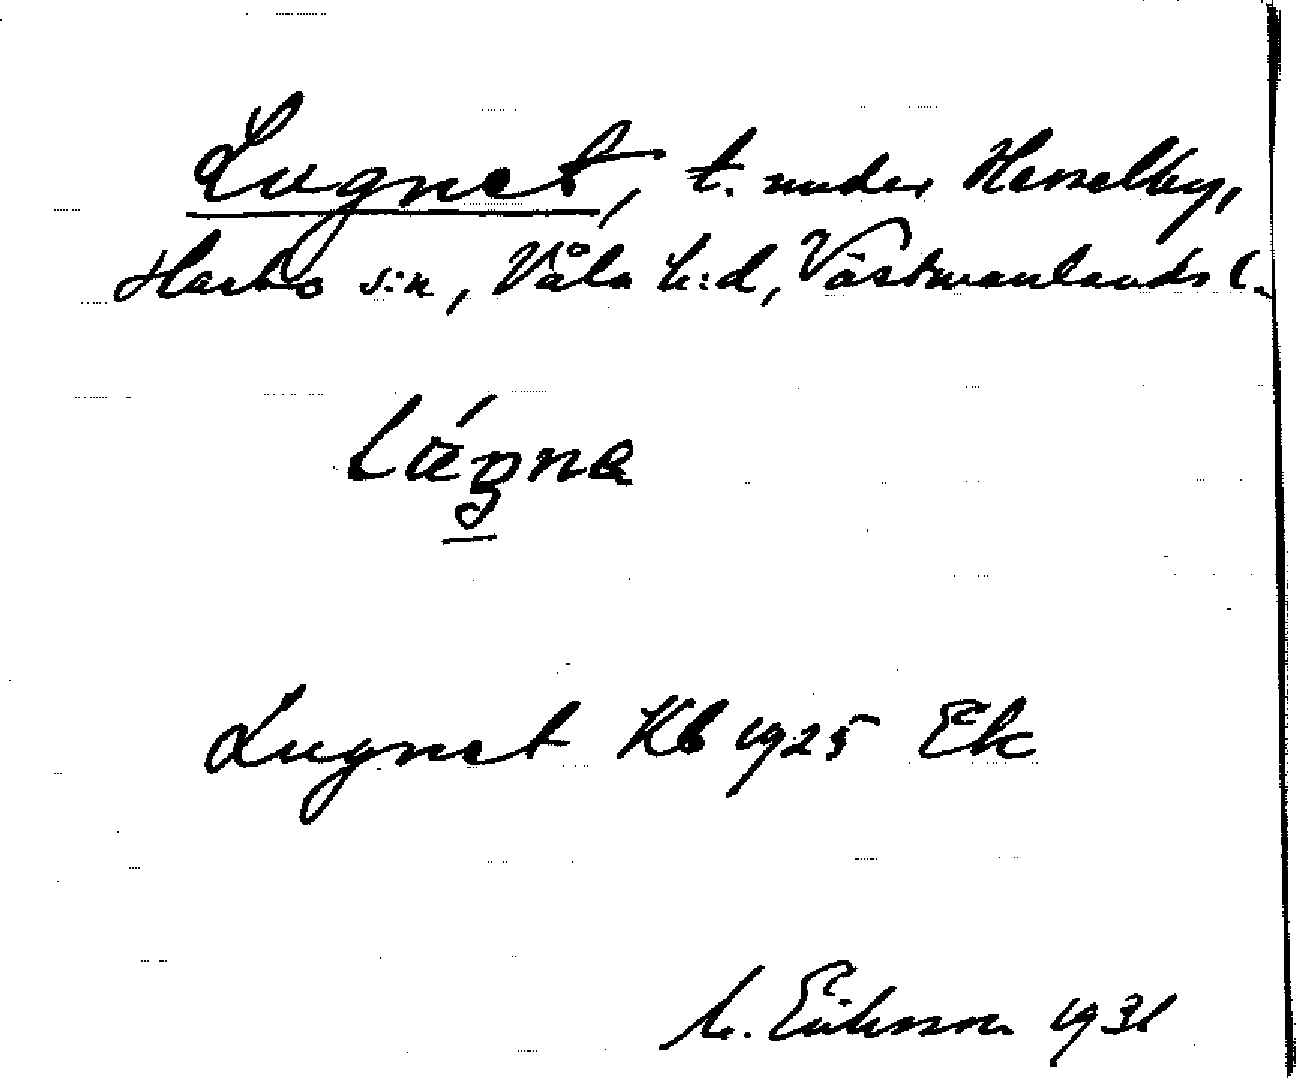 Lugnet, t. under Hesselby,
Harbo s:n, Våla h:d, Västmanlands l.
Lugnet Kb 1925 Ek
Eriksson 1931